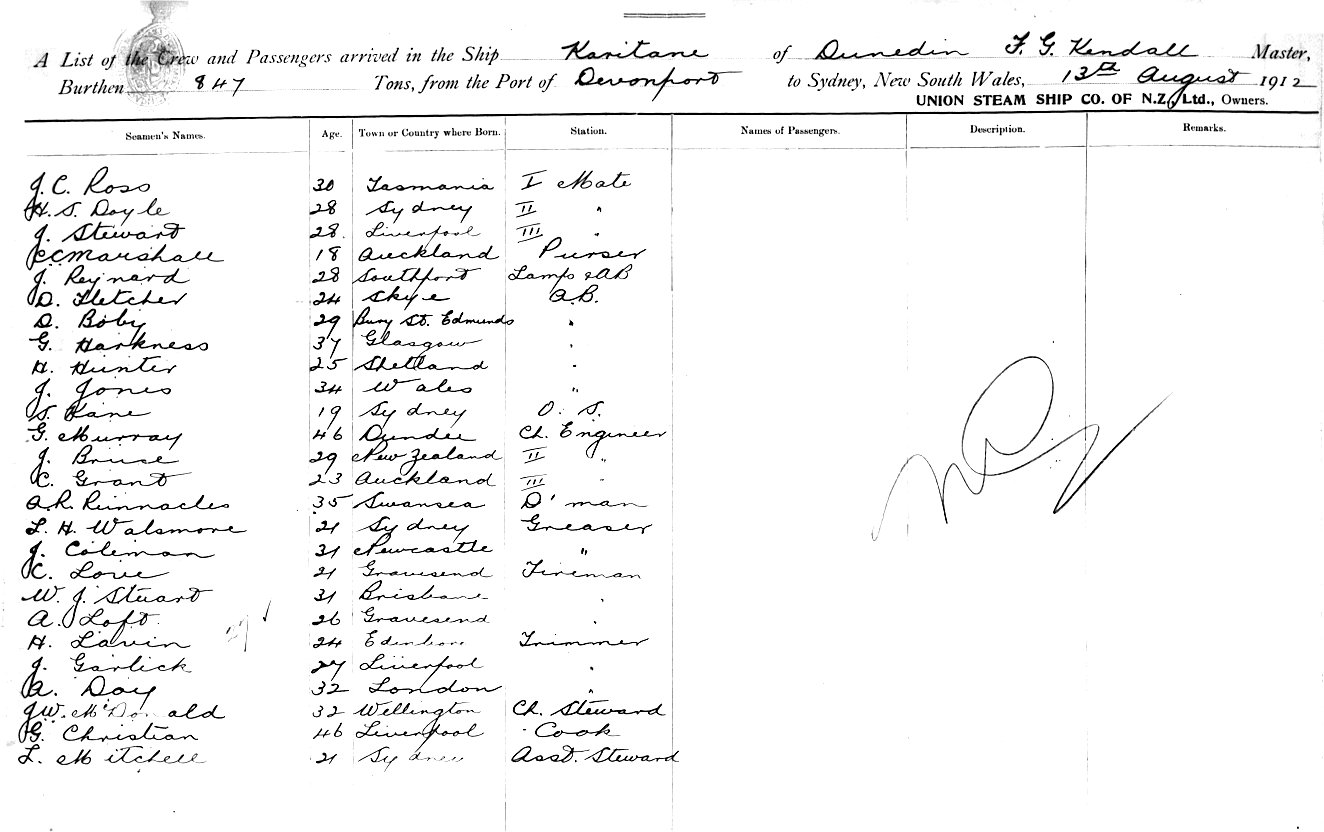 A List of the Crew and Passengers arrived in the Ship Karitane of Dunedin F. G. Kendall Master,
Burthen 847 Tons, from the Port of Devonport to Sydney, New South Wales, 13th August 1912
UNION STEAM SHIP CO. OF N.Z., Ltd., Owners.
Seamen's Names. Age. Town or Country where Born. Station. Names of Passengers. Description. Remarks.
J. C. Ross 30 Tasmania I Mate
H. S. Doyle 28 Sydney II "
J. Stewart 28. Liverpool III "
C C Marshall 18 Auckland Purser
J. Reynard 28 Southport Lamps & AB
D. Fletcher 24 Skye A.B.
D. Boby 29 Bury St. Edmunds "
G. Harkness 37 Glasgow "
H. Hunter 25 Shetland "
J. Jones 34 Wales "
S. Kane 19 Sydney O. S.
G. Murray 46 Dundee Ch. Engineer
J. Bruse 29 New Zealand II "
C. Grant 23 Auckland III "
A. R. 35 Swansea D'man
L. H. Walsmore 21 Sydney Greaser
J. Coleman 31 Newcastle "
C. Love 21 Gravesend Fireman
W. J. Stuart 31 Brisbane "
A. Loft 26 Gravesend "
H. Lavin 24 Trimmer
J. Garlick 27 Liverpool "
A. Day 32 London "
J. W. McDonald 32 Wellington Ch. Steward
G. Christian 46 Liverpool Cook
L. Mitchell 21 Sydney Asst. Steward